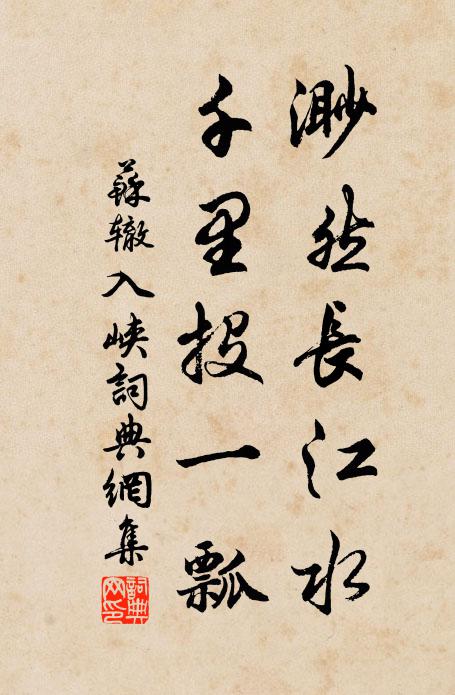 渺然長江水
千里投一瓢
蘇辙入峡詞典網集
詞典網印